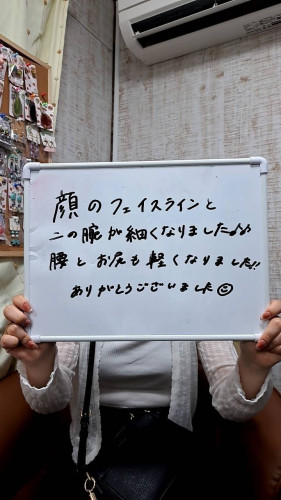 顔のフェイスラインと
二の腕が細くなりました♪♪
腰とお尻も軽くなりました!!
ありがとうございました☺